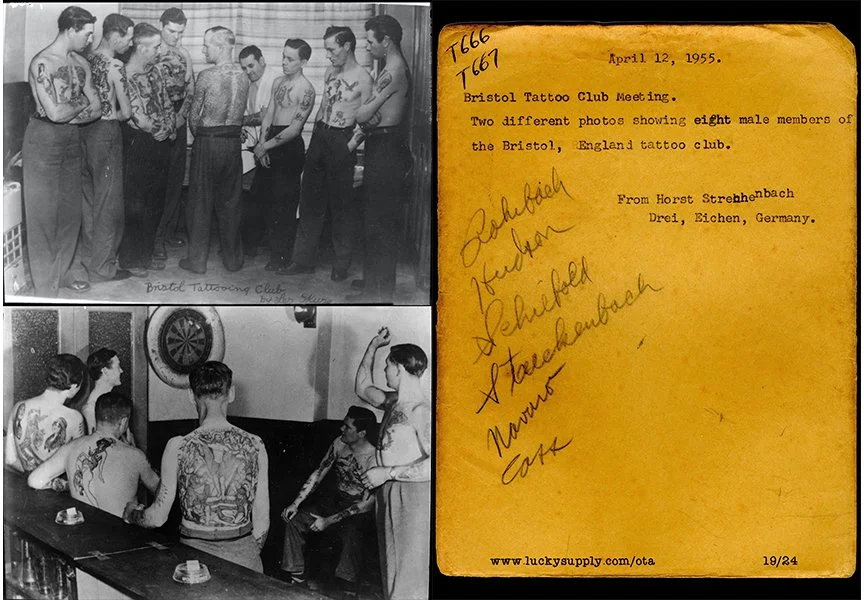 Bristol Tattooing Club
by Les
T666
T667
April 12, 1955.
Bristol Tattoo Club Meeting.
Two different photos showing eight male members of
the Bristol, England tattoo club.
From Horst Strehhenbach
Drei, Eichen, Germany.
Rohrbach
Hudson
Schiefold
Stackenbach
Navaro
Cass
www.luckysupply.com/ota
19/24